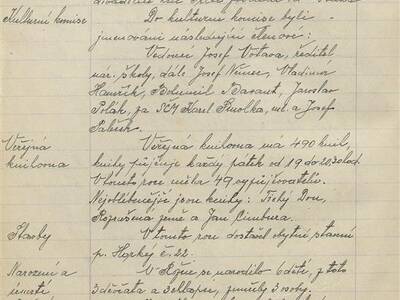 Kulturní komise
Do kulturní komise byli
jmenováni následující členové:
Vedoucí Josef Votava, ředitel
nár. školy, dáli Josef Němec, Vladimír
Havrlík, Bohumil Davant, Jaroslav
Polák, za SČM Karel Smolka, uč. a Josef
Veřejná
knihovna
Veřejná knihovna má 490 knih,
knihy půjčuje každý pátek od 19 do 20,30 hod.
V tomto roce měla 49 vypůjčovatelů.
Nejoblíbenější jsou knihy: Tichý Don,
Rozrušená země a Jan Cimbura.
Stavby
V tomto roce dostavěl obytné stavení
p. Horký č. 22.
Narození a
úmrtí
se narodilo 6 dětí, z toho
3 děvčata a 3 chlapci, zemřely 3 osoby.